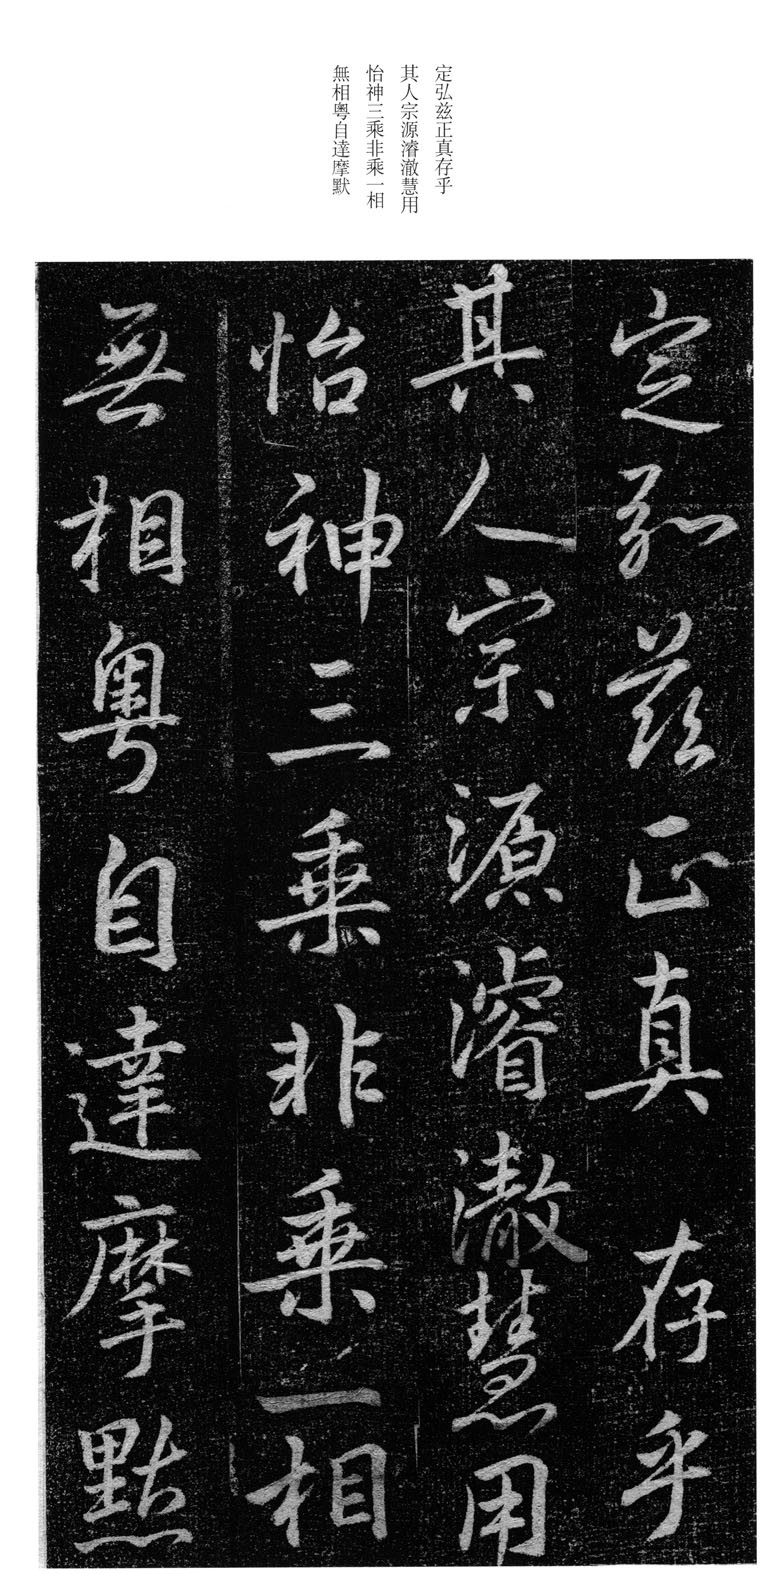 定弘茲正真存乎
其人宗源濬澈慧用
怡神三乘非乘一相
無相粵自達摩默
定弘茲正真存乎
其人宗源濬澈慧用
怡神三乘非乘一相
無相粵自達摩默